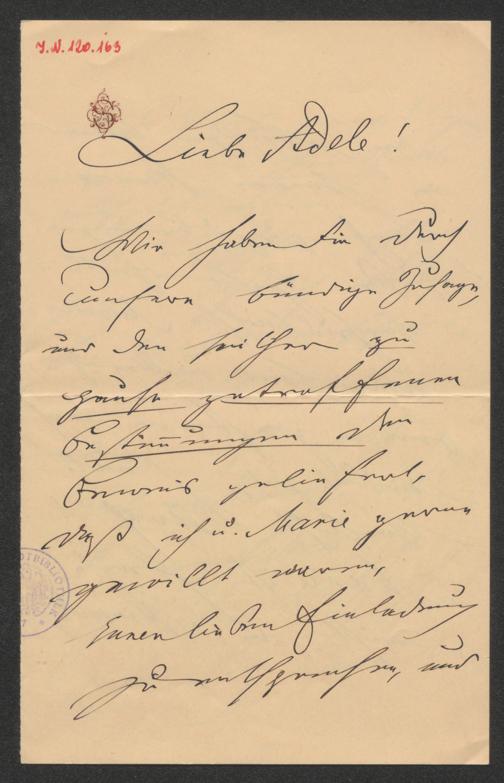 J.N. 120.163
Liebe Adele!
Wir haben Dir durch
unsere bündige Zusage,
und den seither zu
Hause getroffenen
Bestimmungen den
Beweis geliefert,
daß ich u. Marie gerne
gewillt waren,
Euren lieben Einladung
zu entsprechen, und